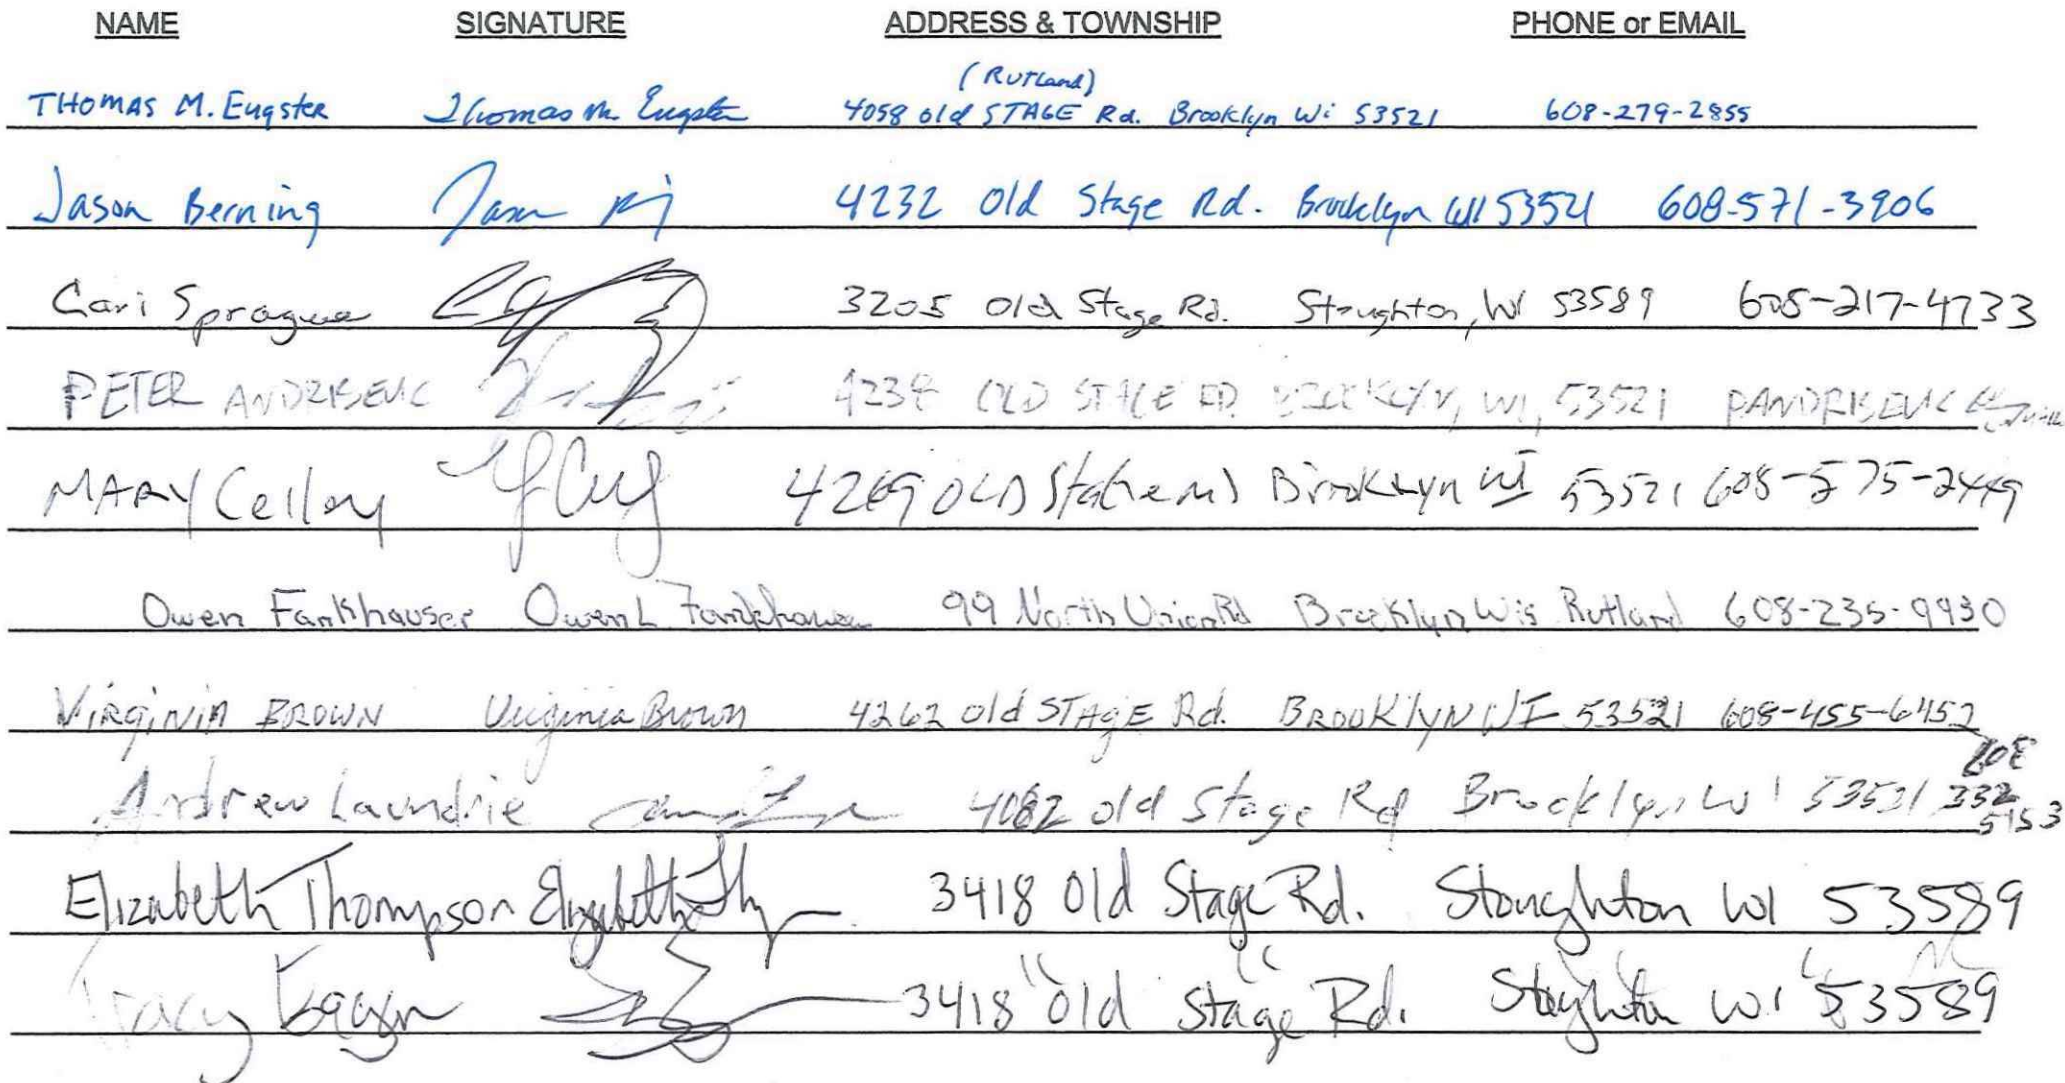 NAME SIGNATURE ADDRESS & TOWNSHIP PHONE or EMAIL
(Rutland)
THOMAS M. Eugster Thomas M. Eugster 4058 old STAGE Rd. Brooklyn Wi 53521 608-279-2855
Jason Berning Jason 4232 Old Stage Rd. Brooklyn WI 53521 608-571-3906
Cari Sprague 3205 Old Stage Rd. Stoughton, WI 53589 608-217-4733
PETER ANDRISEVIC 4238 OLD STAGE RD BROOKLYN, WI, 53521 PANDRISEVIC
MARY Celley 4269 OLD Brooklyn WI 53521 608-575-2449
Owen Fankhauser Owen L Fankhauser 99 North Union Rd Brooklyn Wis Rutland 608-235-9930
VIRGINIA BROWN Virginia Brown 4262 old STAGE Rd. BROOKlYN WI 53521 608-455-6452
Andrew Laundrie 4082 old Stage Rd Brooklyn WI 53521 608 332 5153
Elizabeth Thompson Elizabeth 3418 Old Stage Rd. Stoughton WI 53589
Tracy 3418 Old Stage Rd. Stoughton WI 53589